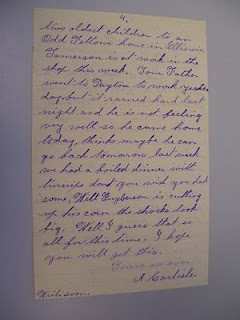 4,
two oldest children to an
Odd Fellows home in Illinois
Jamerson is at work in the
shop this week. Your Father
went to Dayton to work yester
day but it rained hard last
night and he is not feeling
very well so he came home
today, thinks maybe he can
go back tomorrow, last week
we had a boiled dinner with
turnips dont you wish you had
some, Well is cutting
up his corn the shocks look
big. Well I guess that is
all for this time. I hope
you will get this.
A. Carlisle
Write soon.